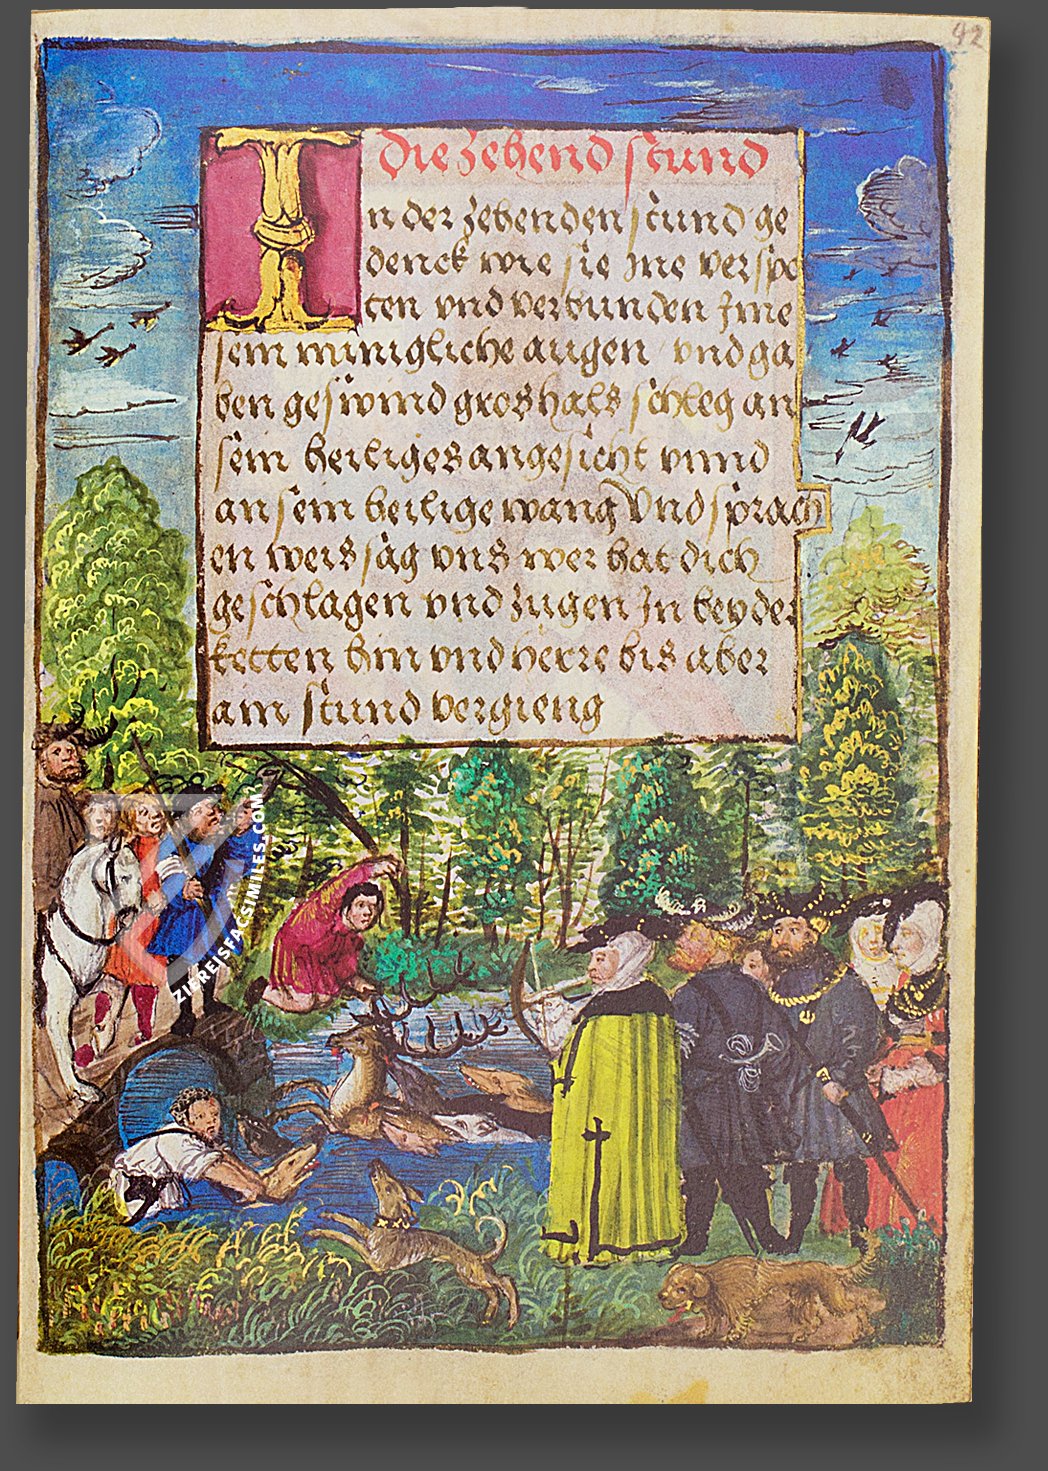 42
Die Zehend stund
In der zehenden stund ge
denck wie sie Ine verspo
ten vnd verbunden Ime
sein minigliche augen vnd ga
ben geswind gros hals schleg an
sein heiliges angesicht vnnd
an sein heilige wang Vnd sprach
en weissag vns wer hat dich
geschlagen vnd zugen In beyder
ketten hin vnd herre bis aber
ain stund vergieng
ZIEREISFACSIMILES.COM